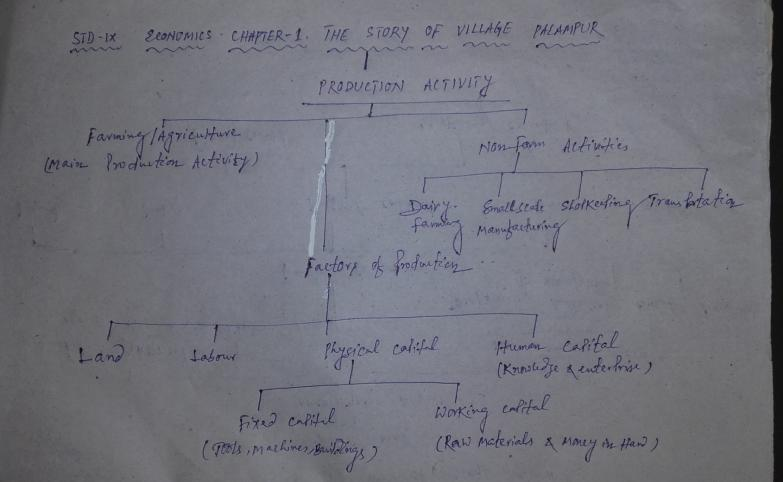 STD-IX ECONOMICS. CHAPTER-1. THE STORY OF VILLAGE PALAMPUR
PRODUCTION ACTIVITY
Farming/Agriculture
(Main Production Activity)
Non-Farm Activities
Dairy-
farming
Small scale
manufacturing
Shopkeeping
Transportation
Factors of Production
Land
Labour
Physical capital
Human capital
(Knowledge & enterprise)
Fixed capital
(Tools, Machines, Buildings)
Working capital
(Raw Materials & Money in Hand)